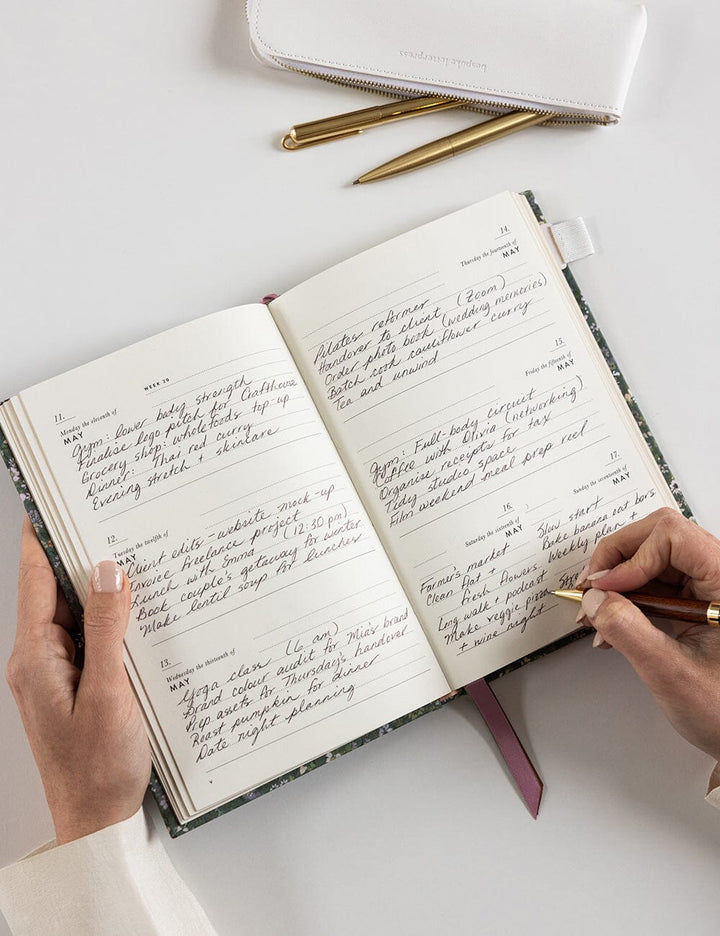 bespoke letterpress
WEEK 20
11.
Monday the eleventh of
MAY
Gym: lower body strength
Finalise logo pitch for Crafthouse
Grocery shop: wholefoods top-up
Dinner: Thai red curry
Evening stretch + skincare
12.
Tuesday the twelfth of
MAY
Client edits - website mock-up
Invoice freelance project
Lunch with Emma (12:30 pm)
Book couple's getaway for winter
Make lentil soup for lunches
13.
Wednesday the thirteenth of
MAY
Yoga class (6 am)
Brand colour audit for Mia's brand
Prep assets for Thursday's handover
Roast pumpkin for dinner
Date night planning
14.
Thursday the fourteenth of
MAY
Pilates reformer
Handover to client (Zoom)
Order photo book (wedding memories)
Batch cook cauliflower curry
Tea and unwind
15.
Friday the fifteenth of
MAY
Gym: Full-body circuit
Coffee with Olivia (networking)
Organise receipts for tax
Tidy studio space
Film weekend meal prep reel
16.
Saturday the sixteenth of
MAY
Farmer's market
Clean flat +
fresh flowers
Long walk + podcast
Make veggie pizza
+ wine night
17.
Sunday the seventeenth of
MAY
Slow start
Bake banana eat bars
Weekly plan +